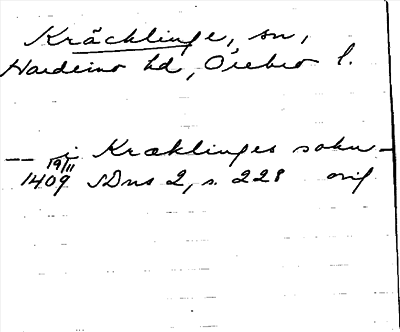 Kräcklinge, sn,
Hardemo hd, Örebro l.
-- i Kræklinges sokn -
19/11 1409 SDns 2, s. 228 orig